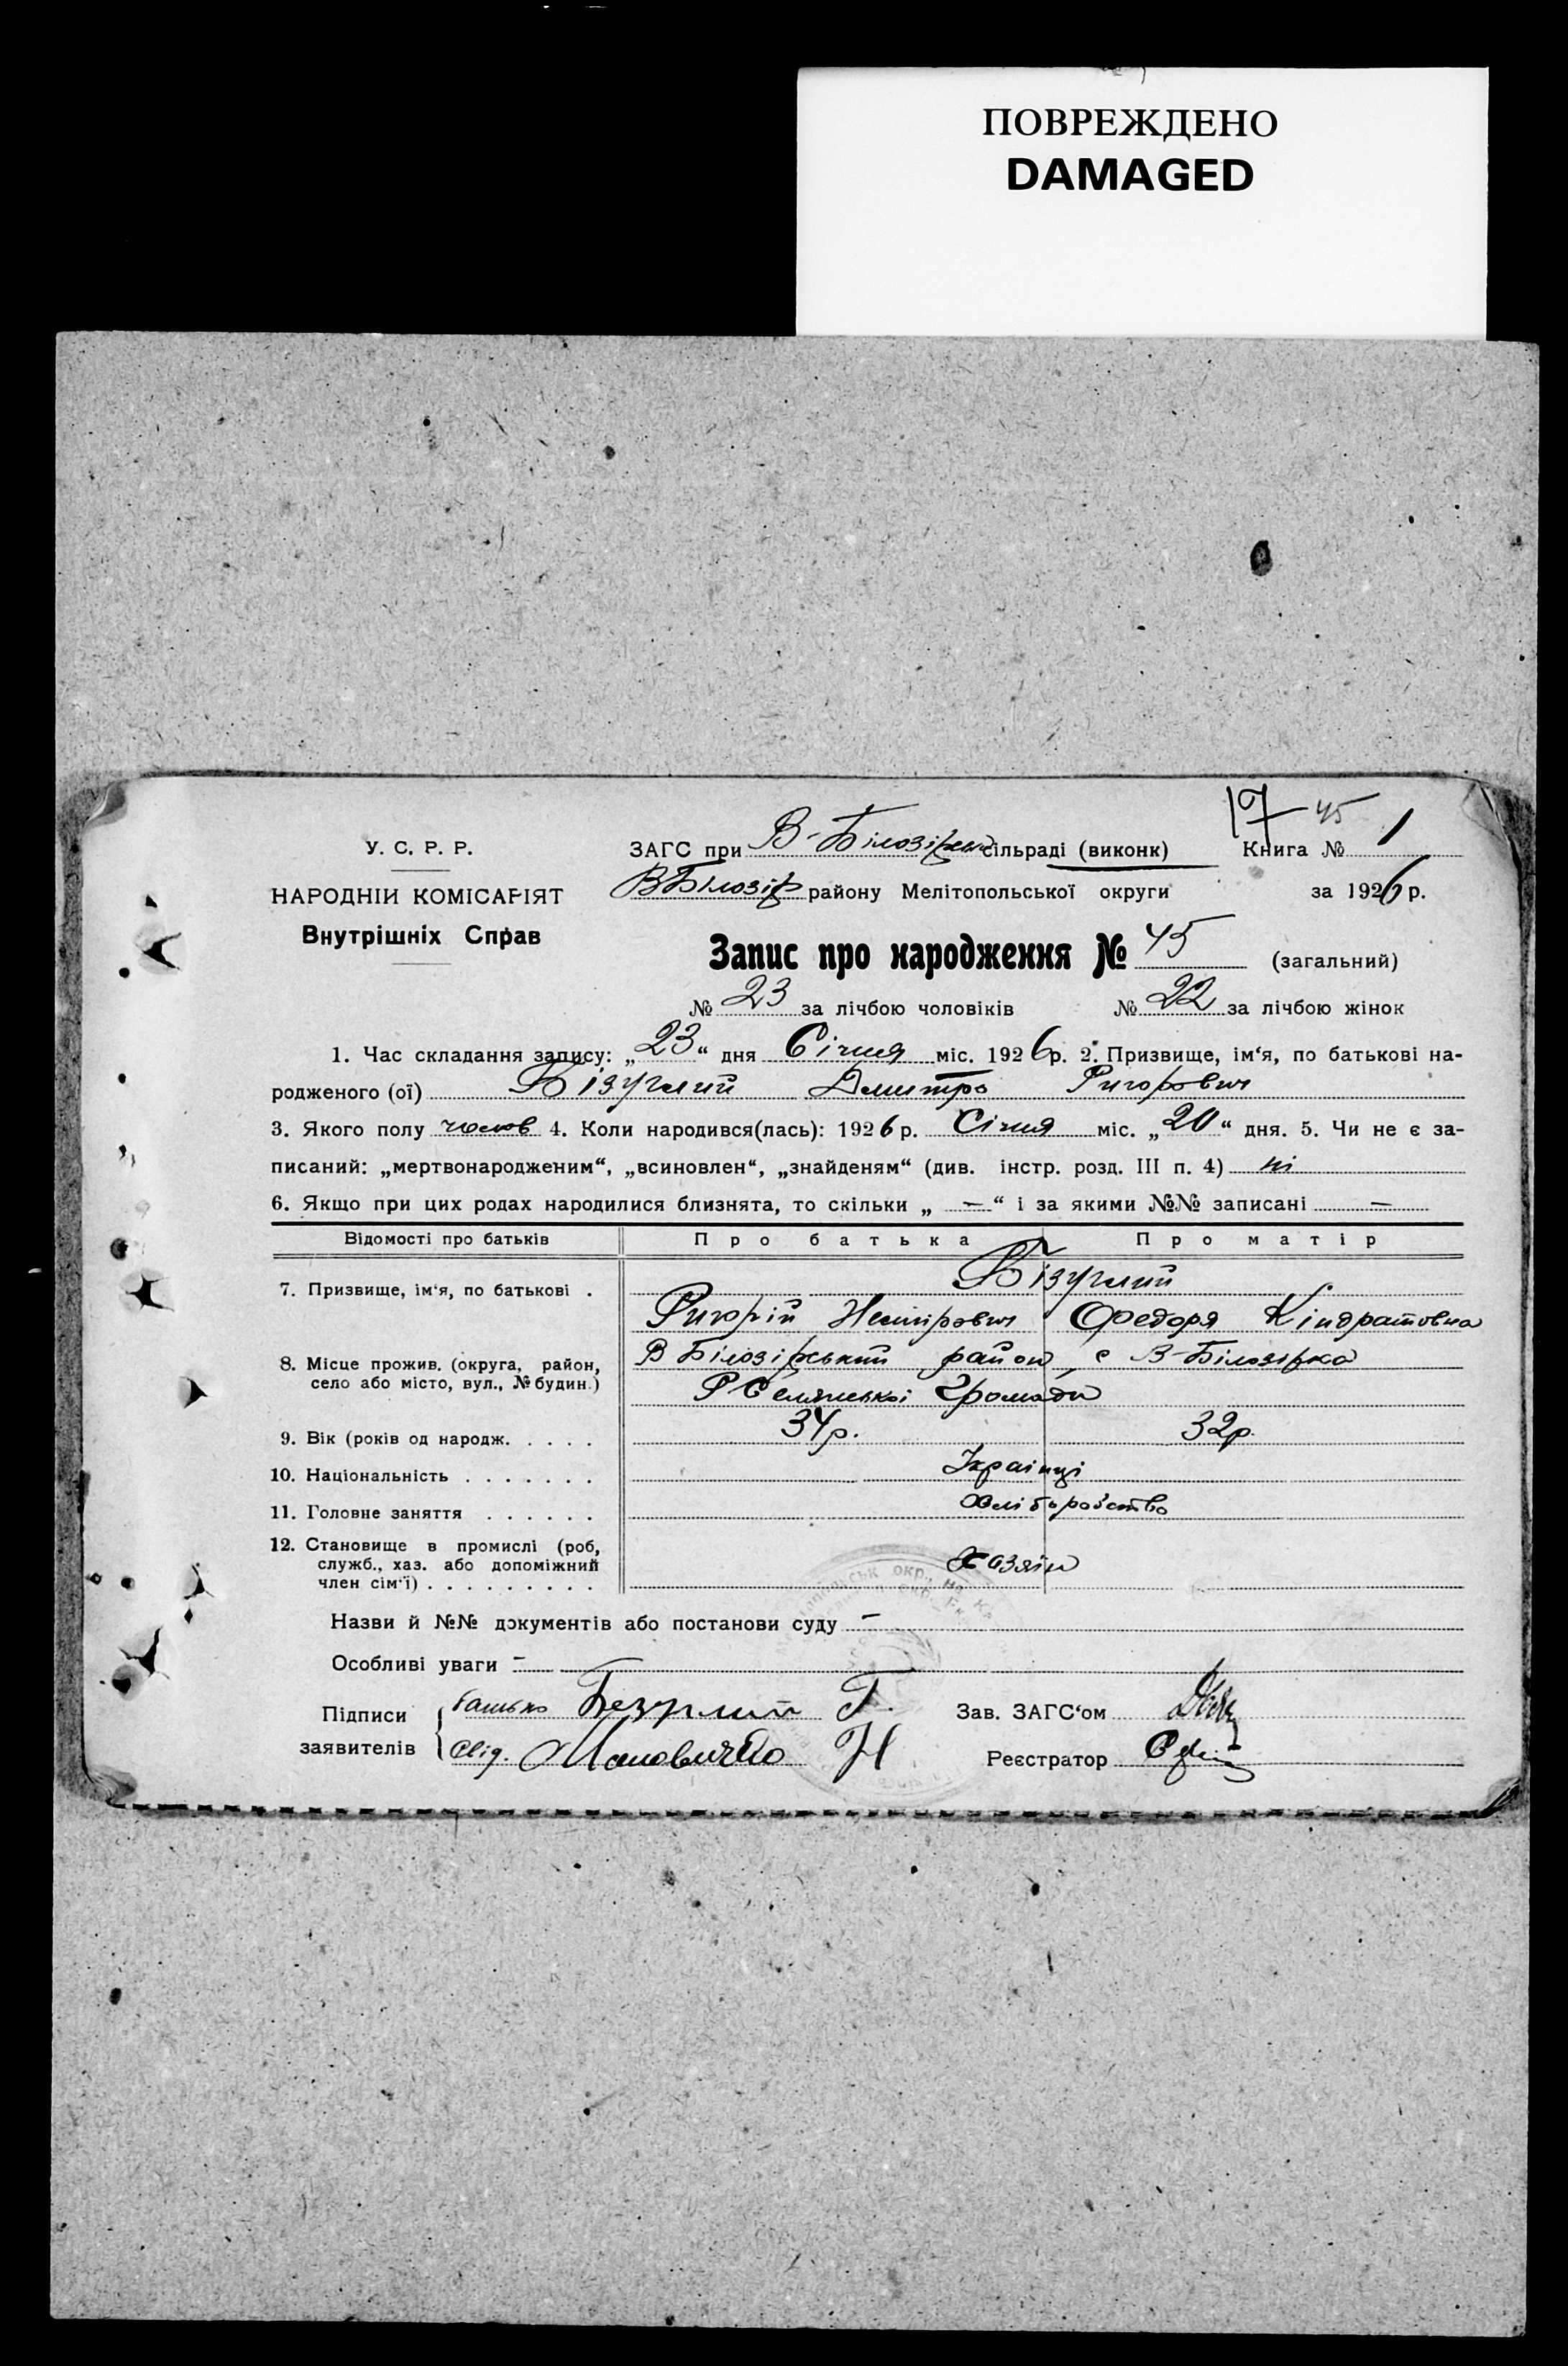 ПОВРЕЖДЕНО
DAMAGED
17 45
У. С. Р. Р.
ЗАГС при В-Білозірськ сільраді (виконк) Книга № 1
НАРОДНІЙ КОМІСАРІЯТ
В Білозір району Мелітопольської округи за 1926 р.
Внутрішніх Справ
Запис про народження № 45 (загальний)
№ 23 за лічбою чоловіків № 22 за лічбою жінок
1. Час складання запису: „23“ дня Січня міс. 1926 р. 2. Призвище, ім‘я, по батькові на-
родженого (ої) Бізуглий Дмитро Григорович
3. Якого полу чолов 4. Коли народився(лась): 1926 р. Січня міс. „20“ дня. 5. Чи не є за-
писаний: „мертвонародженим“, „всиновлен“, „знайденям“ (див. інстр. розд. III п. 4) ні
6. Якщо при цих родах народилися близнята, то скільки „ — “ і за якими №№ записані —
Відомості про батьків Про батька Про матір
7. Призвище, ім‘я, по батькові . Бізуглий
Григорій Федоря Кіндратовна
8. Місце прожив. (округа, район, село або місто, вул., № будин.) В Білозірський район, с В-Білозірка
Селянської Громади
9. Вік (років од народж. . . . . 34 р. 32 р.
10. Національність . . . . . . . Українці
11. Головне заняття . . . . . . Хліборобство
12. Становище в промислі (роб, служб., хаз. або допоміжний член сім‘ї) . . . . . . . . . Хозяїн
Назви й №№ документів або постанови суду —
Особливі уваги —
Підписи батько Безуглий Г. Зав. ЗАГС‘ом
заявителів свід. Н Реєстратор